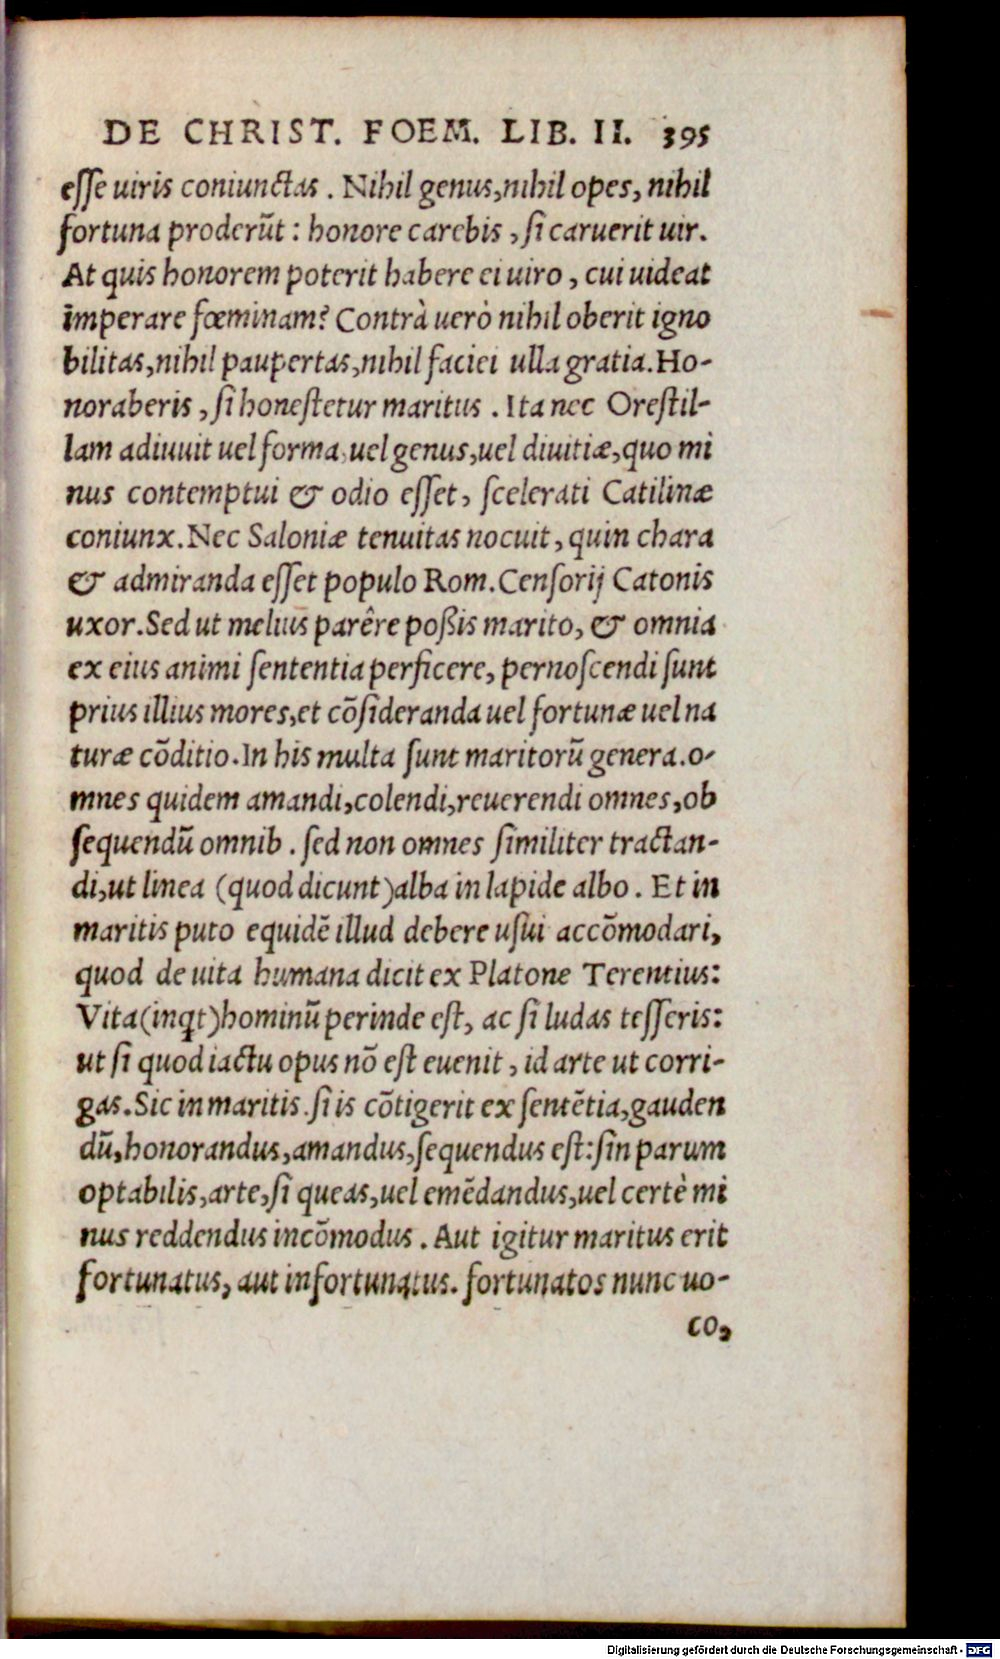 DE CHRIST. FOEM. LIB. II. 395
esse uiris coniunctas . Nihil genus,nihil opes, nihil
fortuna proderũt : honore carebis , si caruerit uir.
At quis honorem poterit habere ei uiro , cui uideat
imperare fœminam? Contrà uerò nihil oberit igno
bilitas,nihil paupertas,nihil faciei ulla gratia.Ho-
noraberis , si honestetur maritus . Ita nec Orestil-
lam adiuuit uel forma,uel genus,uel diuitiæ,quo mi
nus contemptui & odio esset, scelerati Catilinæ
coniunx.Nec Saloniæ tenuitas nocuit, quin chara
& admiranda esset populo Rom.Censorij Catonis
uxor.Sed ut melius parêre poßis marito, & omnia
ex eius animi sententia perficere, pernoscendi sunt
prius illius mores,et cõsideranda uel fortunæ uel na
turæ cõditio.In his multa sunt maritorũ genera.o-
mnes quidem amandi,colendi,reuerendi omnes,ob
sequendũ omnib . sed non omnes similiter tractan-
di,ut linea (quod dicunt)alba in lapide albo . Et in
maritis puto equidẽ illud debere usui accõmodari,
quod de uita humana dicit ex Platone Terentius:
Vita(inqt)hominũ perinde est, ac si ludas tesseris:
ut si quod iactu opus nõ est euenit , id arte ut corri-
gas.Sic in maritis.si is cõtigerit ex sentẽtia,gauden
dũ,honorandus,amandus,sequendus est:sin parum
optabilis,arte,si queas,uel emẽdandus,uel certè mi
nus reddendus incõmodus . Aut igitur maritus erit
fortunatus, aut infortunatus. fortunatos nunc uo-
co,
Digitalisierung gefördert durch die Deutsche Forschungsgemeinschaft - DFG